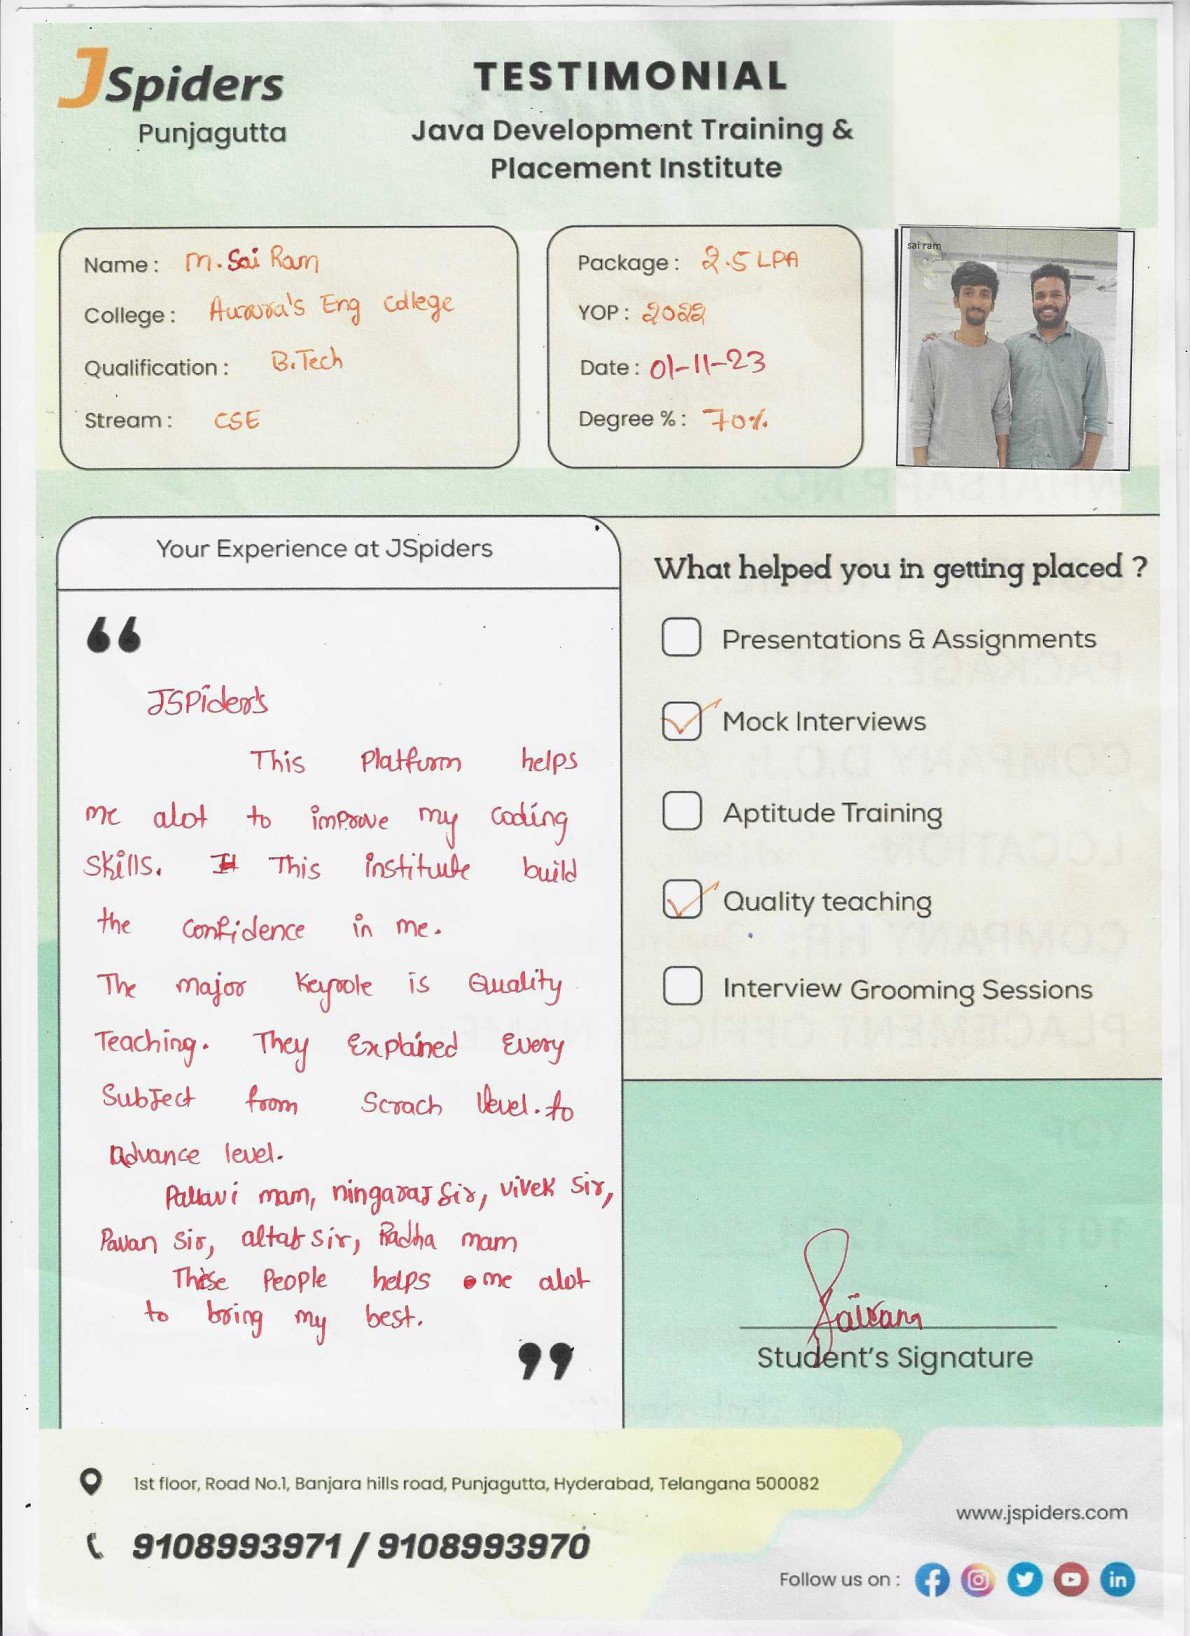 JSpiders
Punjagutta
TESTIMONIAL
Java Development Training &
Placement Institute
Name : M. Sai Ram
College : Aurora's Eng College
Qualification : B.Tech
Stream : CSE
Package : 2.5 LPA
YOP : 2022
Date : 01-11-23
Degree % : 70%
sai ram
Your Experience at JSpiders
“
JSPider's
This Platform helps
me alot to improve my coding
skills. This institute build
the confidence in me.
The major Keyrole is Quality
Teaching. They Explained Every
Subject from Scrach level. to
Advance level.
Pallavi mam, ningaraj Sir, vivek Sir,
Pavan Sir, altaf sir, Radha mam
These People helps me alot
to bring my best.
”
What helped you in getting placed ?
Presentations & Assignments
Mock Interviews
Aptitude Training
Quality teaching
Interview Grooming Sessions
Sairam
Student's Signature
1st floor, Road No.1, Banjara hills road, Punjagutta, Hyderabad, Telangana 500082
9108993971 / 9108993970
www.jspiders.com
Follow us on :